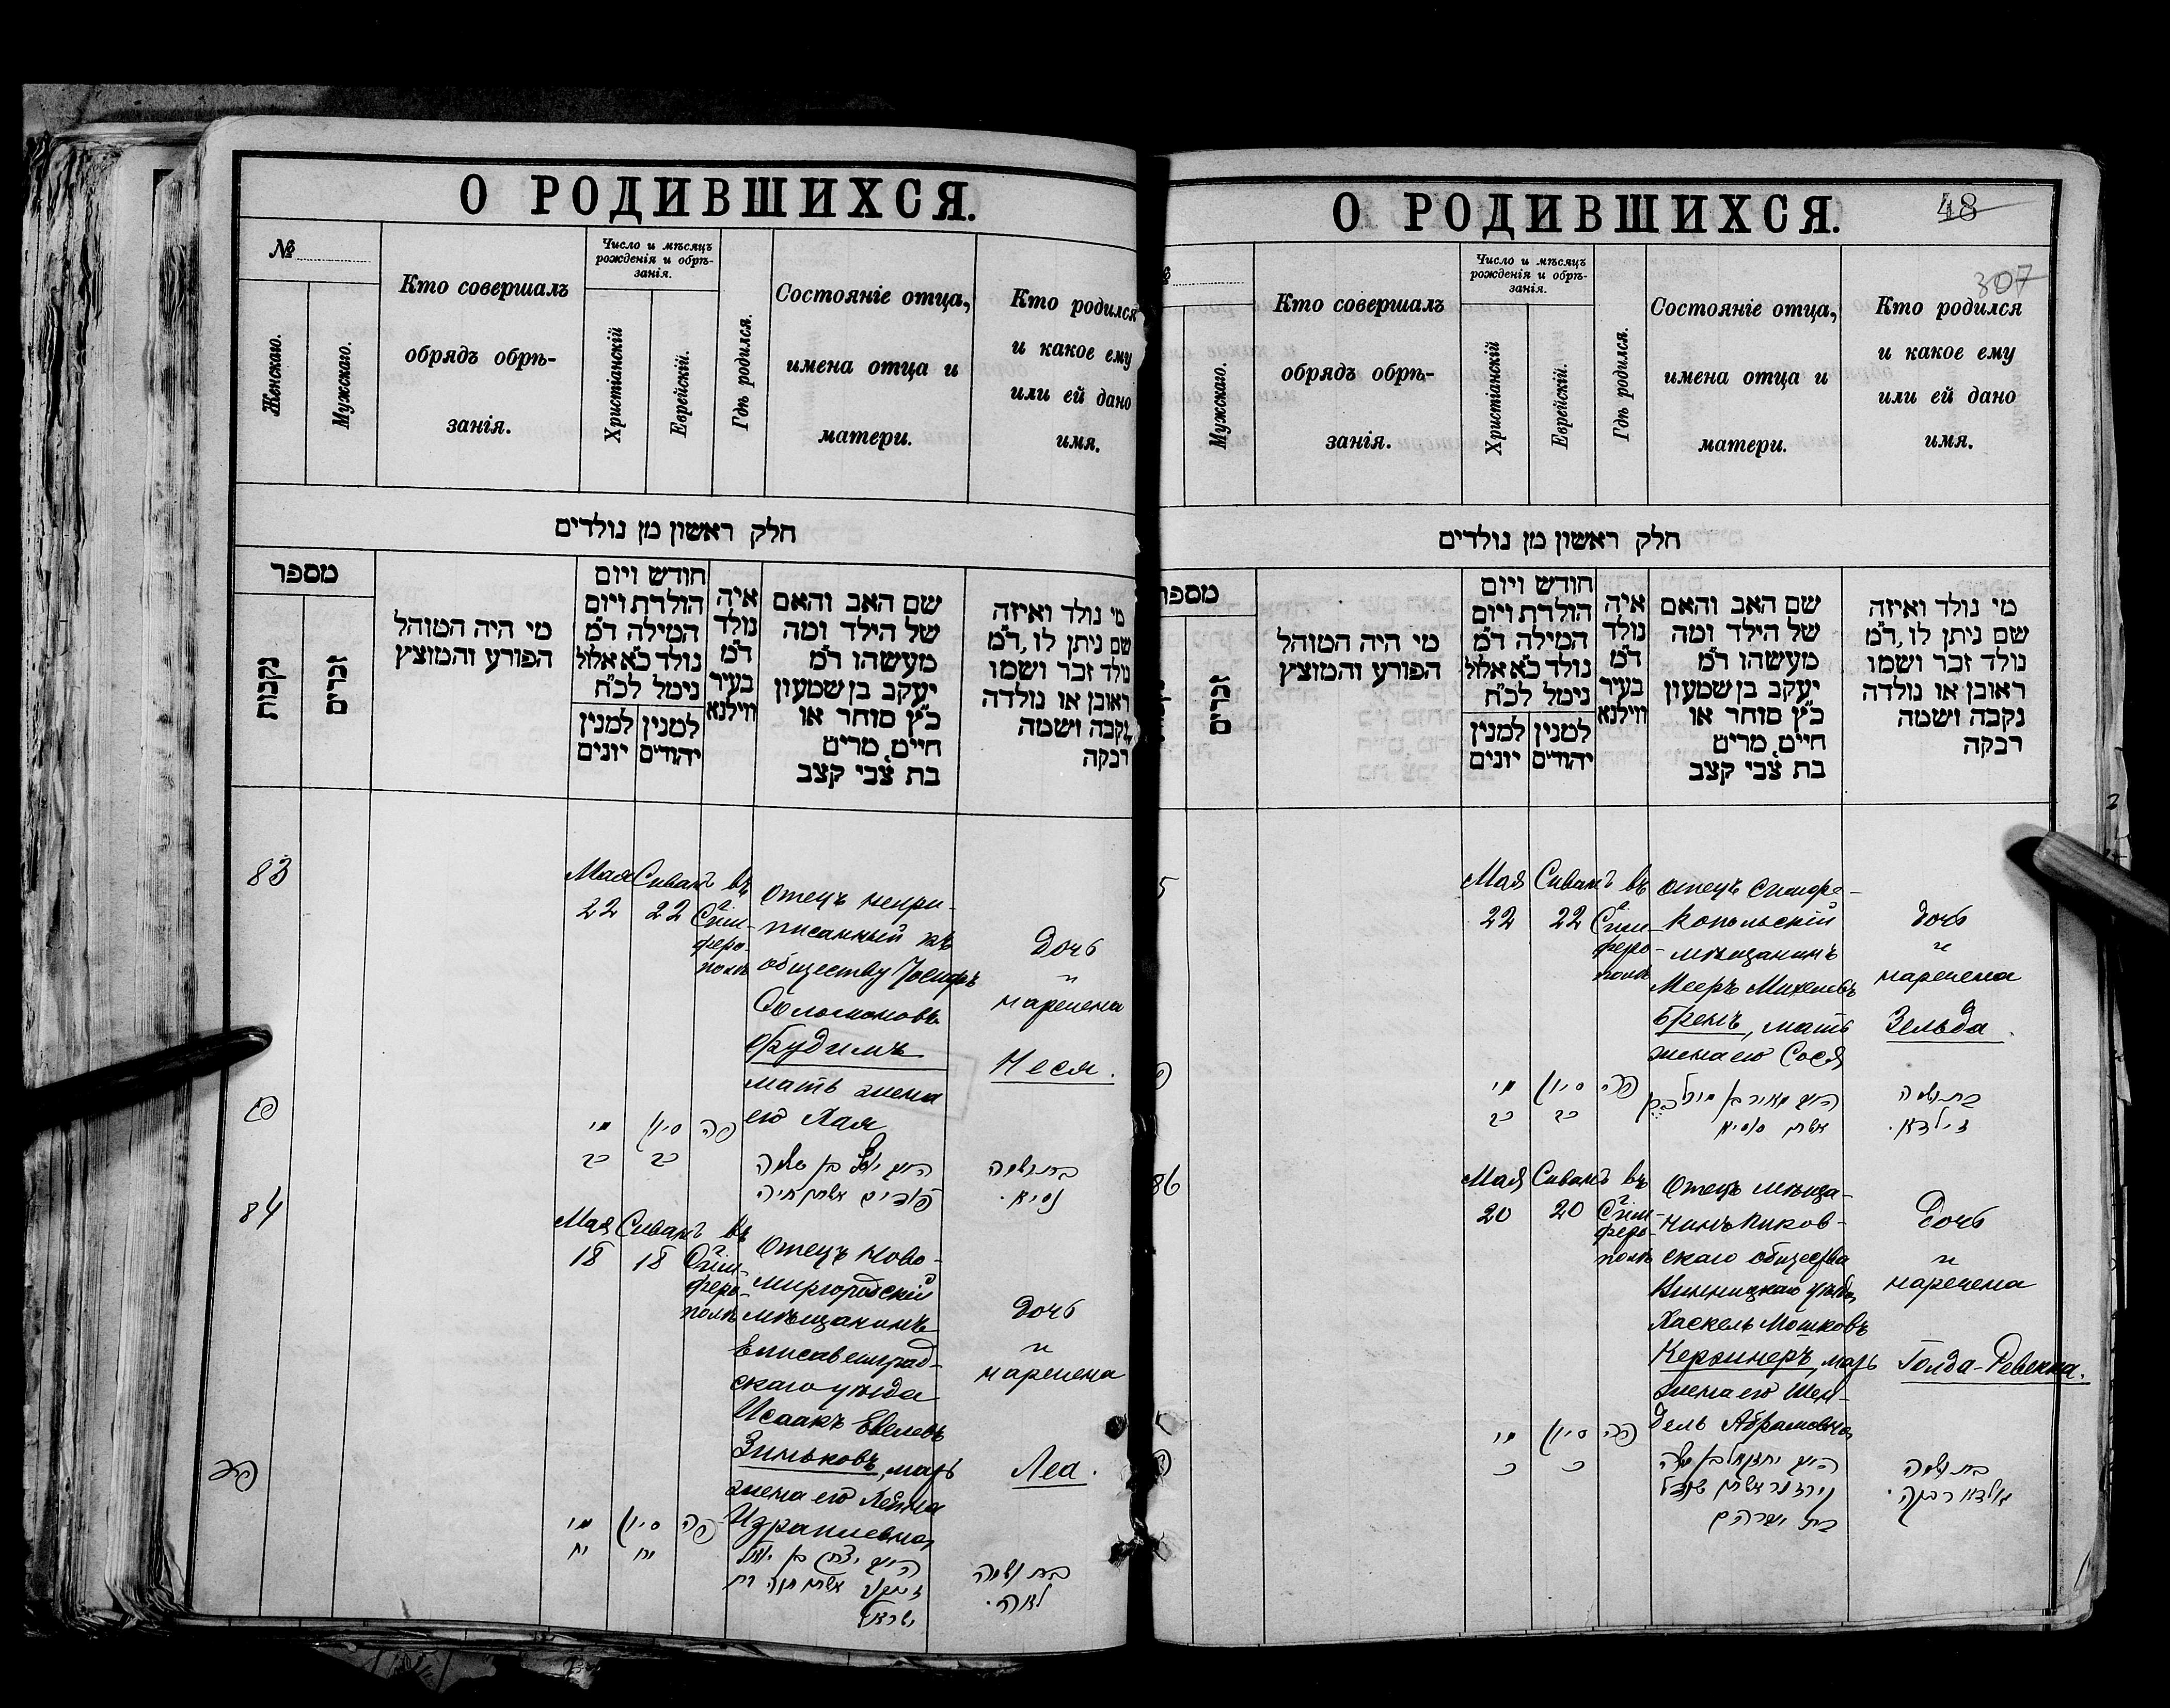 О РОДИВШИХСЯ.
№
Женскаго.
Мужскаго.
Кто совершалъ
обрядъ обрѣ-
занія.
Число и мѣсяцъ
рожденія и обрѣ-
занія.
Христіанскій
Еврейскій.
Гдѣ родился.
Состояніе отца,
имена отца и
матери.
Кто родился
и какое ему
или ей дано
имя.
חלק ראשון מן נולדים
מספר
נקבות
זכרים
מי היה המוהל
הפורע והמוצץ
חודש ויום
הולדת ויום
המילה ד״מ
נולד כ״א אלול
נימל לכ״ח
למנין יהודים
למנין יונים
איה
נולד
ד״מ
בעיר
ווילנא
שם האב והאם
של הילד ומה
מעשהו ד״מ
יעקב בן שמעון
כ״ץ סוחר או
חיים, מרים
בת צבי קצב
מי נולד ואיזה
שם ניתן לו, ד״מ
נולד זכר ושמו
ראובן או נולדה
נקבה ושמה
רבקה
83
Мая
22
Сиванъ
22
въ
Сим-
феро-
полѣ
Отецъ непри-
писанный къ
обществу Іосифъ
Соломоновъ
Фудимъ
мать жена
его Хая
Дочь
и
наречена
Неся.
פה
סיון
כב
מאי
כב
בת ושמה
נסיא.
84
Мая
18
Сиванъ
18
въ
Сим-
феро-
полѣ
Отецъ Ново-
миргородскій
мѣщанинъ
Елисаветград-
скаго уѣзда
Исаакъ Евелевъ
Зиньковъ, мать
жена его
Израилевна
Дочь
и
наречена
Леа.
פה
סיון
יח
מאי
יח
בת ושמה
לאה.
О РОДИВШИХСЯ.
48
307
Мужскаго.
Кто совершалъ
обрядъ обрѣ-
занія.
Число и мѣсяцъ
рожденія и обрѣ-
занія.
Христіанскій
Еврейскій.
Гдѣ родился.
Состояніе отца,
имена отца и
матери.
Кто родился
и какое ему
или ей дано
имя.
חלק ראשון מן נולדים
מספר
זכרים
מי היה המוהל
הפורע והמוצץ
חודש ויום
הולדת ויום
המילה ד״מ
נולד כ״א אלול
נימל לכ״ח
למנין יהודים
למנין יונים
איה
נולד
ד״מ
בעיר
ווילנא
שם האב והאם
של הילד ומה
מעשהו ד״מ
יעקב בן שמעון
כ״ץ סוחר או
חיים, מרים
בת צבי קצב
מי נולד ואיזה
שם ניתן לו, ד״מ
נולד זכר ושמו
ראובן או נולדה
נקבה ושמה
רבקה
5
Мая
22
Сиванъ
22
въ
Сим-
феро-
полѣ
отецъ Симфе-
ропольскій
мѣщанинъ
Мееръ Михелевъ
Бремъ, мать
жена его Сося
Дочь
и
наречена
Зельда.
פה
סיון
כב
מאי
כב
בת ושמה
זילדא.
86
Мая
20
Сиванъ
20
въ
Сим-
феро-
полѣ
Отецъ мѣща-
нинъ Пиков-
скаго общества
Винницкаго уѣзда
Хаскель Мошковъ
Керзнеръ, мать
жена его Шен-
дель Абрамовна
Дочь
и
наречена
Голда-Ревекка.
פה
סיון
כ
מאי
כ
בת ושמה
גאלדא רבקה.